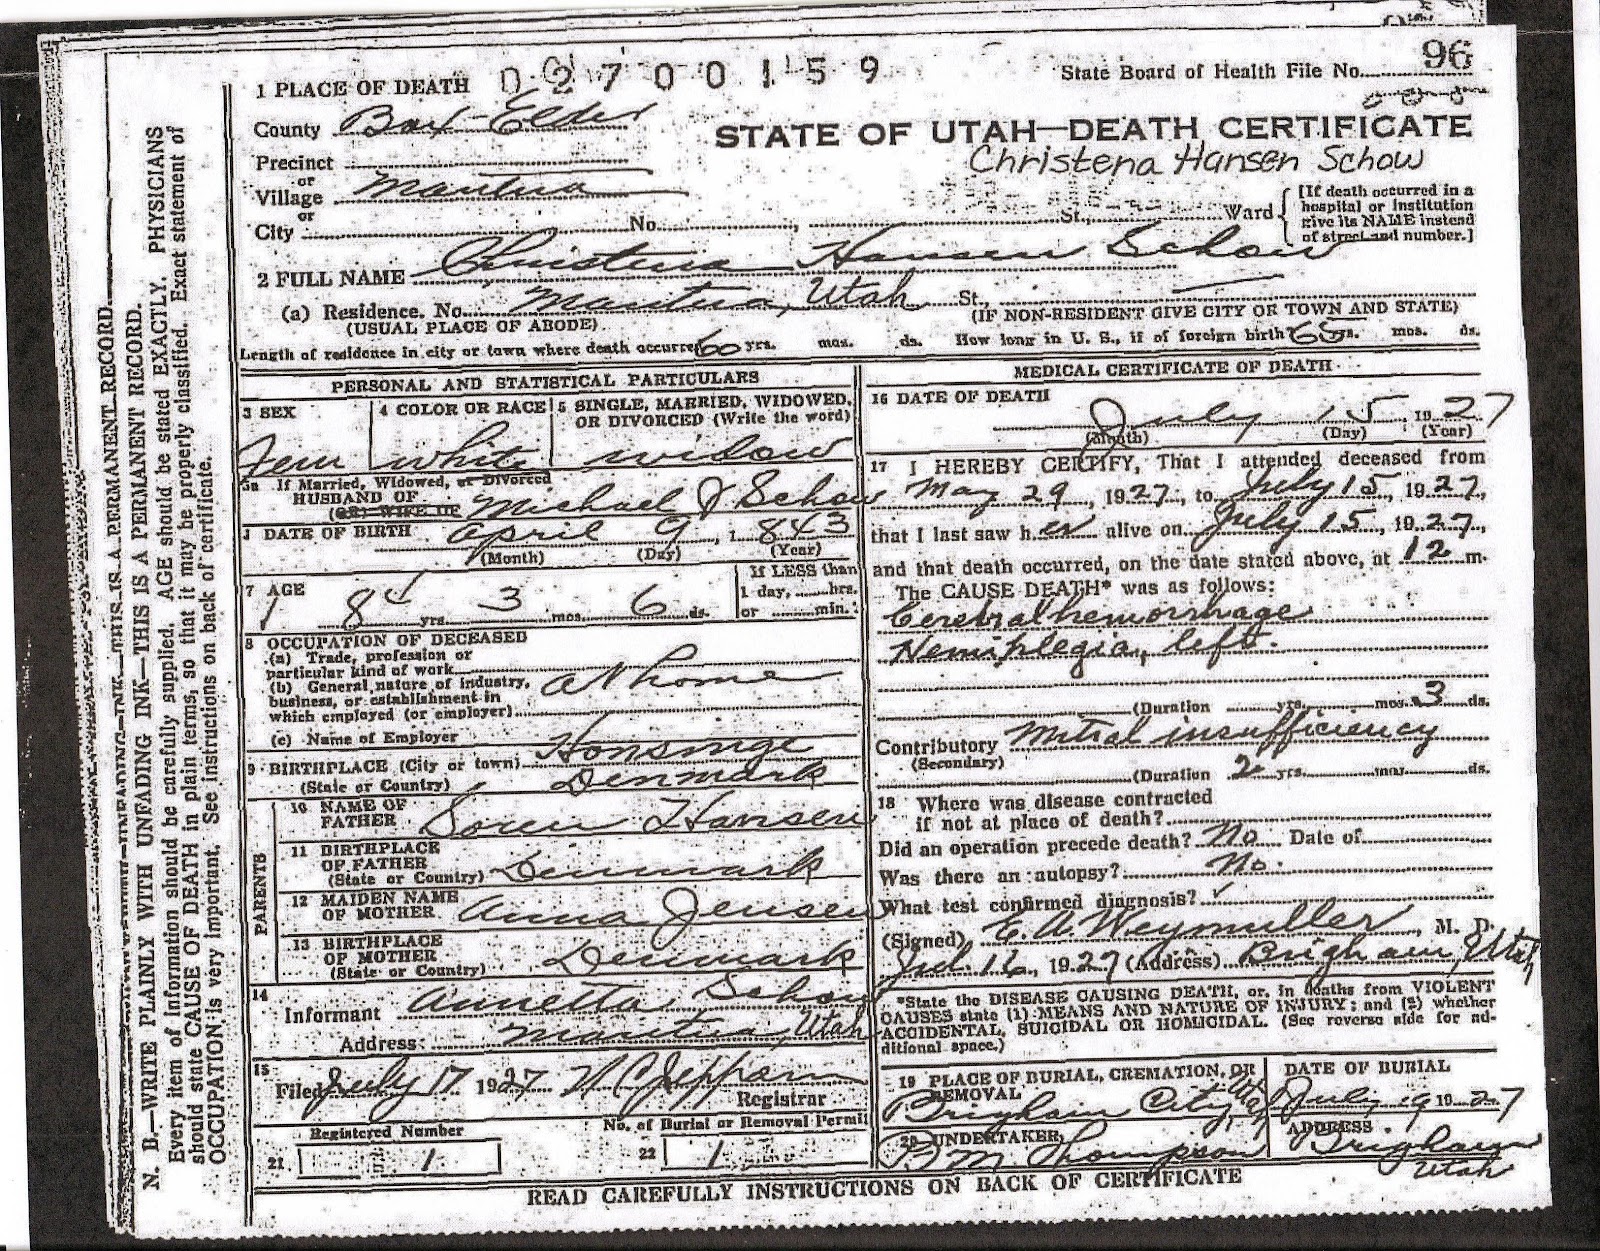 96
1 PLACE OF DEATH 02700159 State Board of Health File No.
County Box Elder
STATE OF UTAH—DEATH CERTIFICATE
Christena Hansen Schow
Precinct
or
Village Mantua
or
City No. St., Ward
[If death occurred in a
hospital or institution
give its NAME instead
of street and number.]
2 FULL NAME Christena Hansen Schow
(a) Residence. No. Mantua, Utah St.,
(USUAL PLACE OF ABODE) (IF NON-RESIDENT GIVE CITY OR TOWN AND STATE)
Length of residence in city or town where death occurred 60 yrs. mos. ds. How long in U. S., if of foreign birth 65 yrs. mos. ds.
PERSONAL AND STATISTICAL PARTICULARS
3 SEX 4 COLOR OR RACE 5 SINGLE, MARRIED, WIDOWED,
OR DIVORCED (Write the word)
Fem white widow
5a If Married, Widowed, or Divorced
HUSBAND OF
(OR) WIFE OF Michael J Schow
DATE OF BIRTH April 9, 1843
(Month) (Day) (Year)
7 AGE 84 yrs. 3 mos. 6 ds.
If LESS than
1 day, hrs.
or min.
8 OCCUPATION OF DECEASED
(a) Trade, profession or
particular kind of work
(b) General nature of industry,
business, or establishment in
which employed (or employer)
at home
(c) Name of Employer
9 BIRTHPLACE (City or town)
(State or Country) Denmark
PARENTS
10 NAME OF
FATHER Soren Hansen
11 BIRTHPLACE
OF FATHER
(State or Country) Denmark
12 MAIDEN NAME
OF MOTHER Anna Jensen
13 BIRTHPLACE
OF MOTHER
(State or Country) Denmark
14
Informant Annetta Schow
Address: Mantua, Utah
15
Filed July 17 1927 N C Jeppsen
Registrar
Registered Number No. of Burial or Removal Permit
21 1 22 1
MEDICAL CERTIFICATE OF DEATH
16 DATE OF DEATH
July 15 1927
(Month) (Day) (Year)
17 I HEREBY CERTIFY, That I attended deceased from
May 29, 1927, to July 15, 1927,
that I last saw her alive on July 15, 1927,
and that death occurred, on the date stated above, at 12 m.
The CAUSE DEATH* was as follows:
Cerebral hemorrhage
Hemiplegia, left.
(Duration yrs. mos. 3 ds.
Contributory Mitral insufficiency
(Secondary)
(Duration 2 yrs. mos. ds.
18 Where was disease contracted
if not at place of death?
Did an operation precede death? No Date of
Was there an autopsy? No.
What test confirmed diagnosis? ✓
(Signed) E. A. Weymuller, M. D.
Jul. 16, 1927 (Address) Brigham, Utah
*State the DISEASE CAUSING DEATH, or, in deaths from VIOLENT
CAUSES state (1) MEANS AND NATURE OF INJURY; and (2) whether
ACCIDENTAL, SUICIDAL OR HOMICIDAL. (See reverse side for ad-
ditional space.)
19 PLACE OF BURIAL, CREMATION, OR
REMOVAL
Brigham City, Utah
DATE OF BURIAL
July 19 1927
20 UNDERTAKER
B M Thompson
ADDRESS
Brigham
Utah
READ CAREFULLY INSTRUCTIONS ON BACK OF CERTIFICATE
N. B.—WRITE PLAINLY WITH UNFADING INK—THIS IS A PERMANENT RECORD.
Every item of information should be carefully supplied. AGE should be stated EXACTLY. PHYSICIANS
should state CAUSE OF DEATH in plain terms, so that it may be properly classified. Exact statement of
OCCUPATION is very important. See instructions on back of certificate.